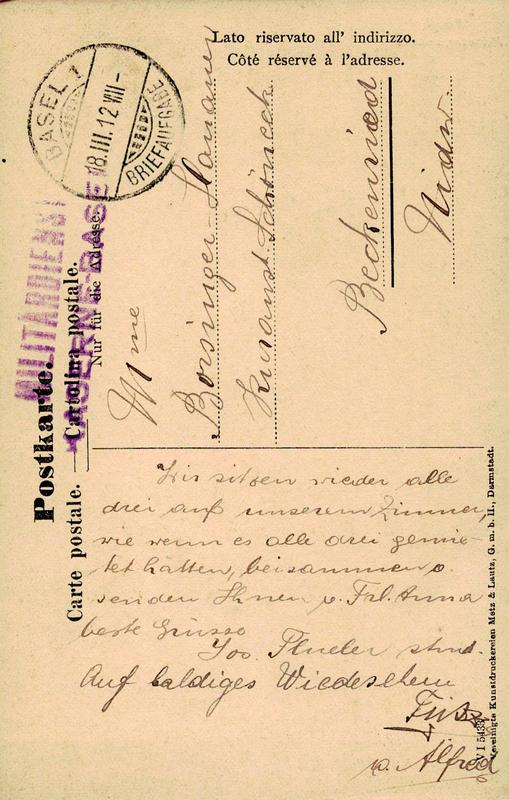 Lato riservato all' indirizzo.
Côté réservé à l'adresse.
BASEL 1
18.III.12 VIII-
BRIEFAUFGABE
MILITÄRDIENST
KASERNE BASEL
Postkarte.
Cartolina postale.
Carte postale.
Nur für die Adresse.
Mme
Borsinger-
Kuranst Schöneck
Beckenried
Nidw.
Wir sitzen wieder alle
drei auf unserem Zimmer,
wie wenn es alle drei gemie-
tet hätten, beisammen u.
senden Ihnen u. Frl. Anna
beste Grüsse
Jos. stud.
Auf baldiges Wiedersehen
u. Alfred
VI 543
Vereinigte Kunstdruckereien Metz & Lautz, G. m. b. H., Darmstadt.